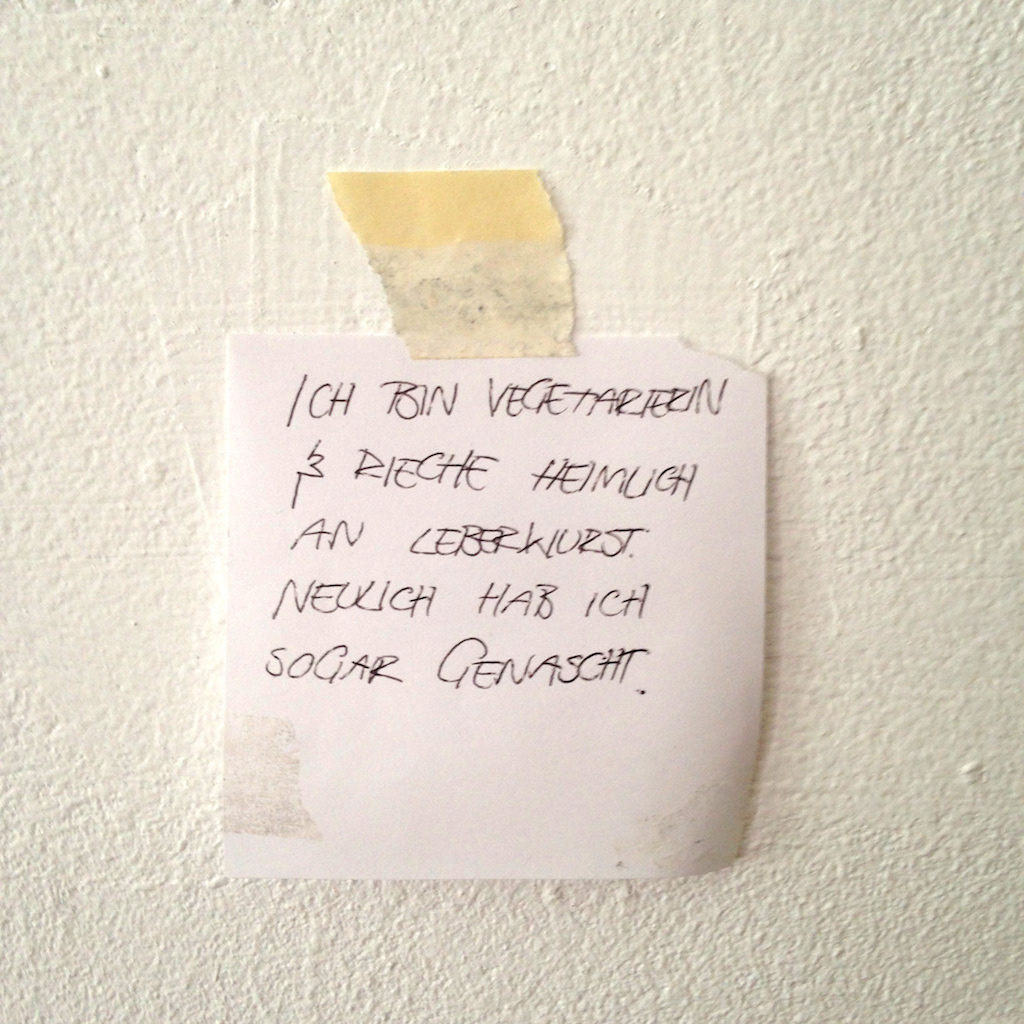 ICH BIN VEGETARIERIN
& RIECHE HEIMLICH
AN LEBERWURST.
NEULICH HAB ICH
SOGAR GENASCHT.